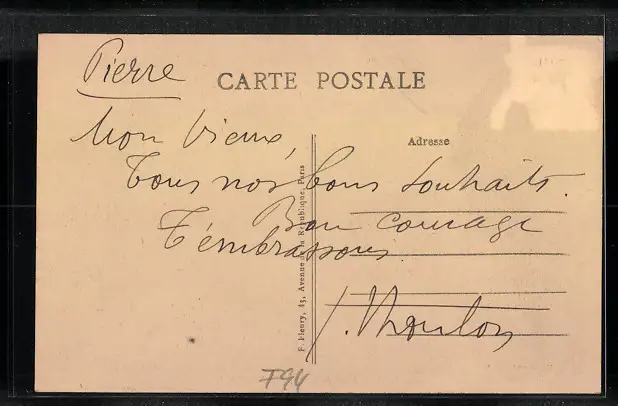 Pierre
CARTE POSTALE
Mon vieux,
Adresse
Tous nos bons souhaits.
Bon courage
T'embrassons
F. Fleury, 45, Avenue de la République, Paris
J. Moulon
F94